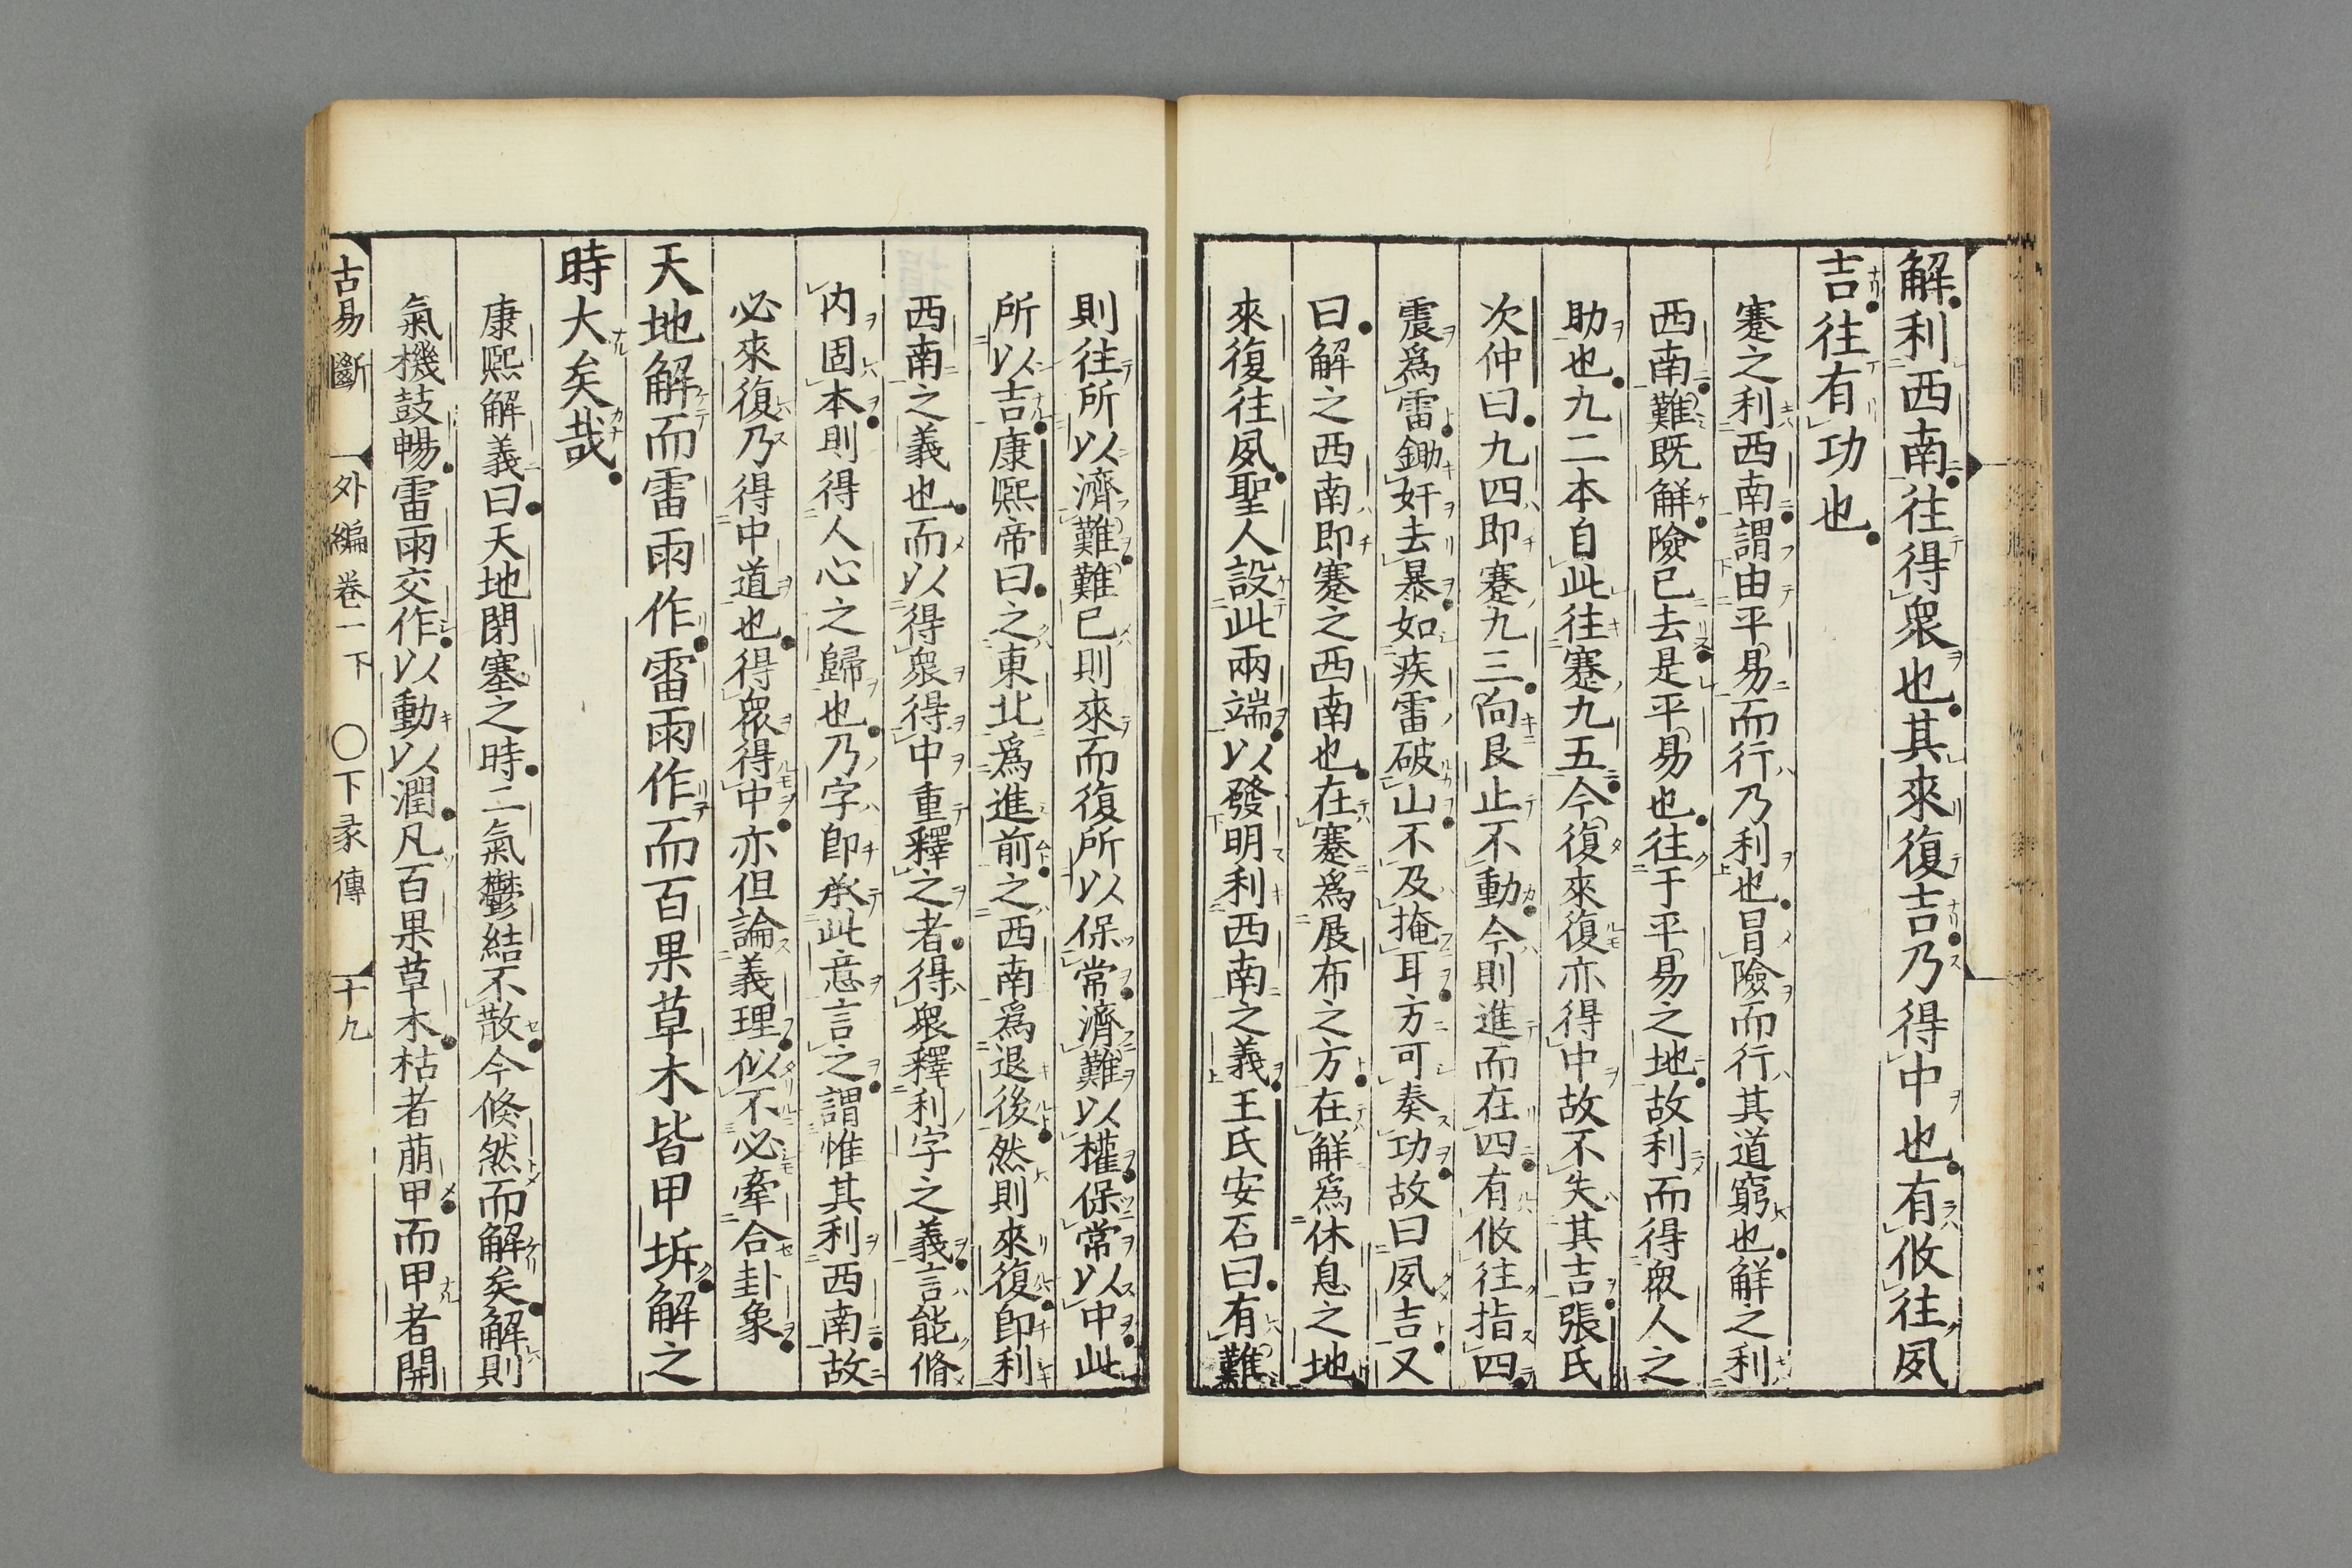 解利西南往得衆也其來復吉乃得中也有攸往夙
吉往有功也
蹇之利西南謂由平易而行乃利也冒險而行其道窮也解之利
西南難既解險已去是平易也往于平易之地故利而得衆人之
助也九二本自此往蹇九五今復來復亦得中故不失其吉張氏
次仲曰九四即蹇九三向艮止不動今則進而在四有攸往指四
震爲雷鋤奸去暴如疾雷破山不及掩耳方可奏功故曰夙吉又
曰解之西南即蹇之西南也在蹇爲展布之方在解爲休息之地
來復往夙聖人設此兩端以發明利西南之義王氏安石曰有難
則往所以濟難難已則來而復所以保常濟難以權保常以中此
所以吉康熙帝曰之東北爲進前之西南爲退後然則來復即利
西南之義也而以得衆得中重釋之者得衆釋利字之義言能脩
内固本則得人心之歸也乃字即承此意言之謂惟其利西南故
必來復乃得中道也得衆得中亦但論義理似不必牽合卦象
天地解而雷雨作雷雨作而百果草木皆甲坼解之
時大矣哉
康熙解義曰天地閉塞之時二氣鬱結不散今倏然而解矣解則
氣機鼓暢雷雨交作以動以潤凡百果草木枯者萠甲而甲者開
古易斷 外編 卷一下 ○下彖傳 十九